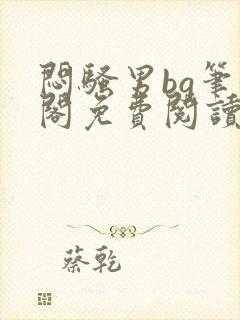 悶騷男bg筆
閣免費閱讀
蔡乾